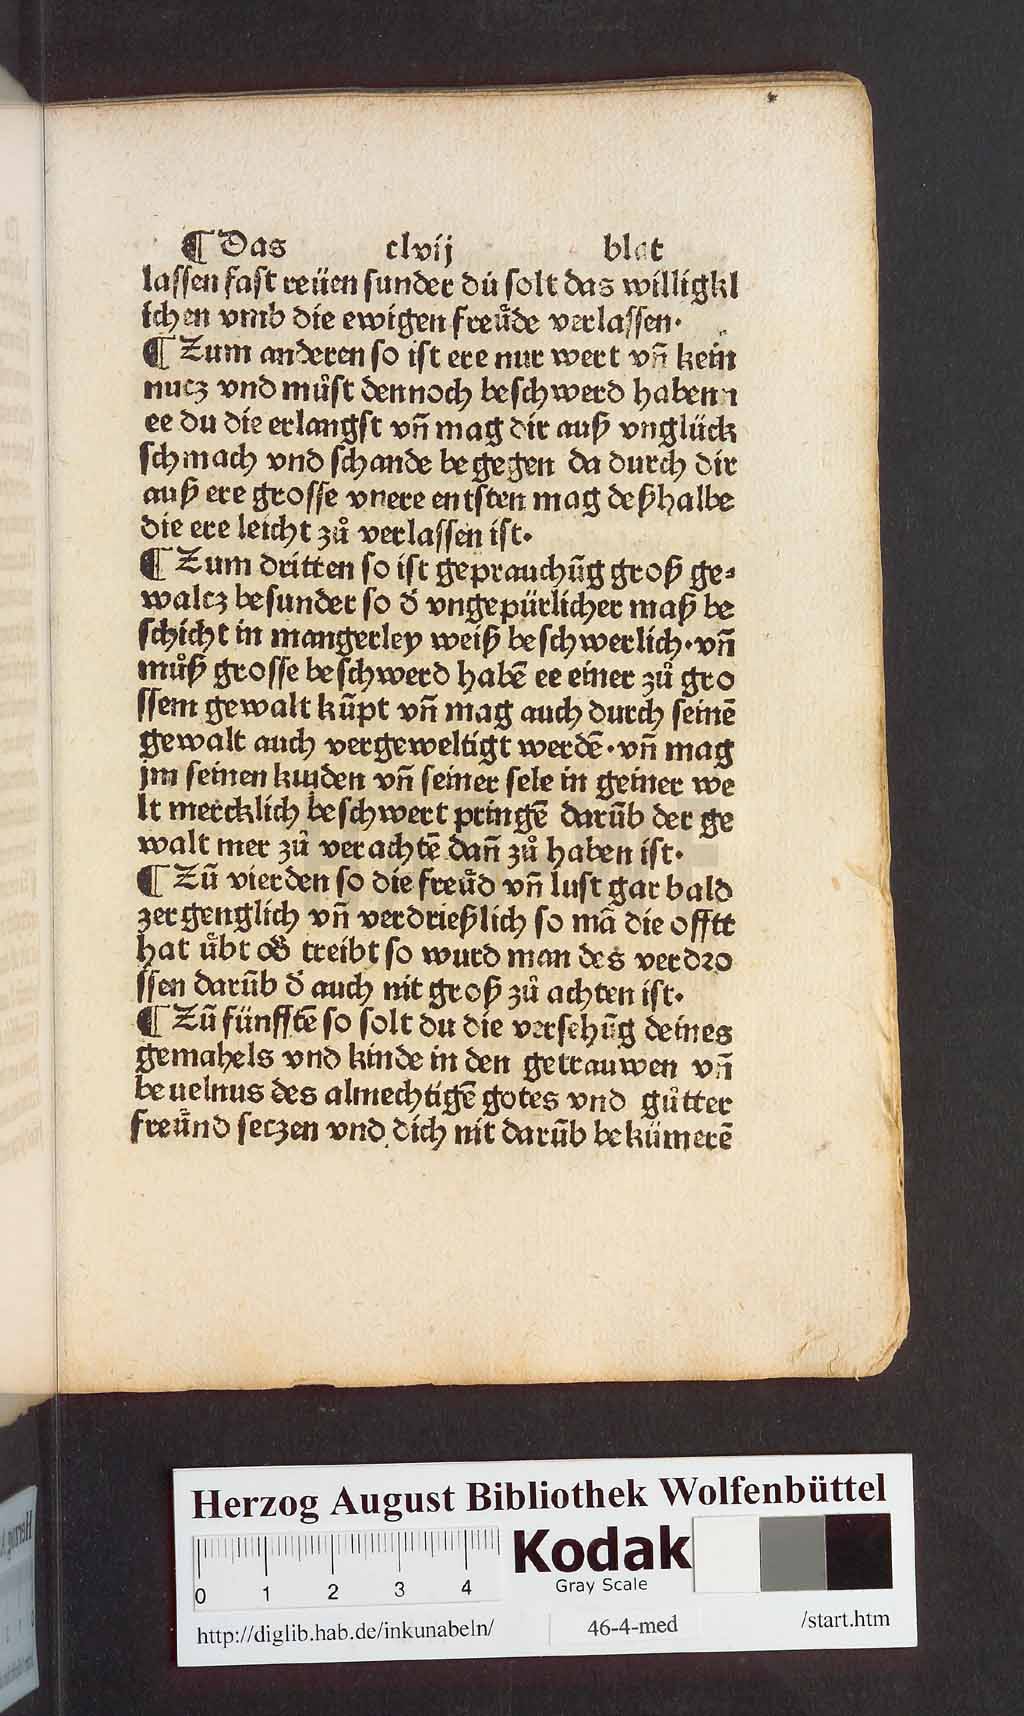 ¶ Das clvij blat
lassen fast reüen sunder dů solt das willigkl
ichen vmb die ewigen freůde verlassen·
¶ Zum anderen so ist ere nur wert vñ kein
nucz vnd můst dennoch beschwerd habenn
ee du die erlangst vñ mag dir auß vnglück
schmach vnd schande begegen da durch dir
auß ere grosse vnere entsten mag deßhalbe
die ere leicht zů verlassen ist·
¶ Zum dritten so ist geprauchũg groß ge⸗
walcz besunder so d̕ vngepürlicher maß be
schicht in mangerley weiß beschwerlich·vñ
můß grosse beschwerd habẽ ee einer zů gro
ssem gewalt kũpt vñ mag auch durch seinẽ
gewalt auch vergeweltigt werdẽ·vñ mag
jm seinen kinden vñ seiner sele in geiner we
lt mercklich beschwert pringẽ darũb der ge
walt mer zů verachtẽ dañ zů haben ist·
¶ Zũ vierden so die freůd vñ lust gar bald
zergenglich vñ verdrießlich so mã die offtt
hat ůbt od̕ treibt so wurd man des verdꝛo
ssen darũb d̕ auch nit groß zů achten ist·
¶ Zũ fünfftẽ so solt du die versehũg deines
gemahels vnd kinde in den getrauwen vñ
beuelnus des almechtigẽ gotes vnd gůtter
freůnd seczen vnd dich nit darũb bekümerẽ
Herzog August Bibliothek Wolfenbüttel
0 1 2 3 4
Kodak
Gray Scale
http://diglib.hab.de/inkunabeln/ 46-4-med /start.htm